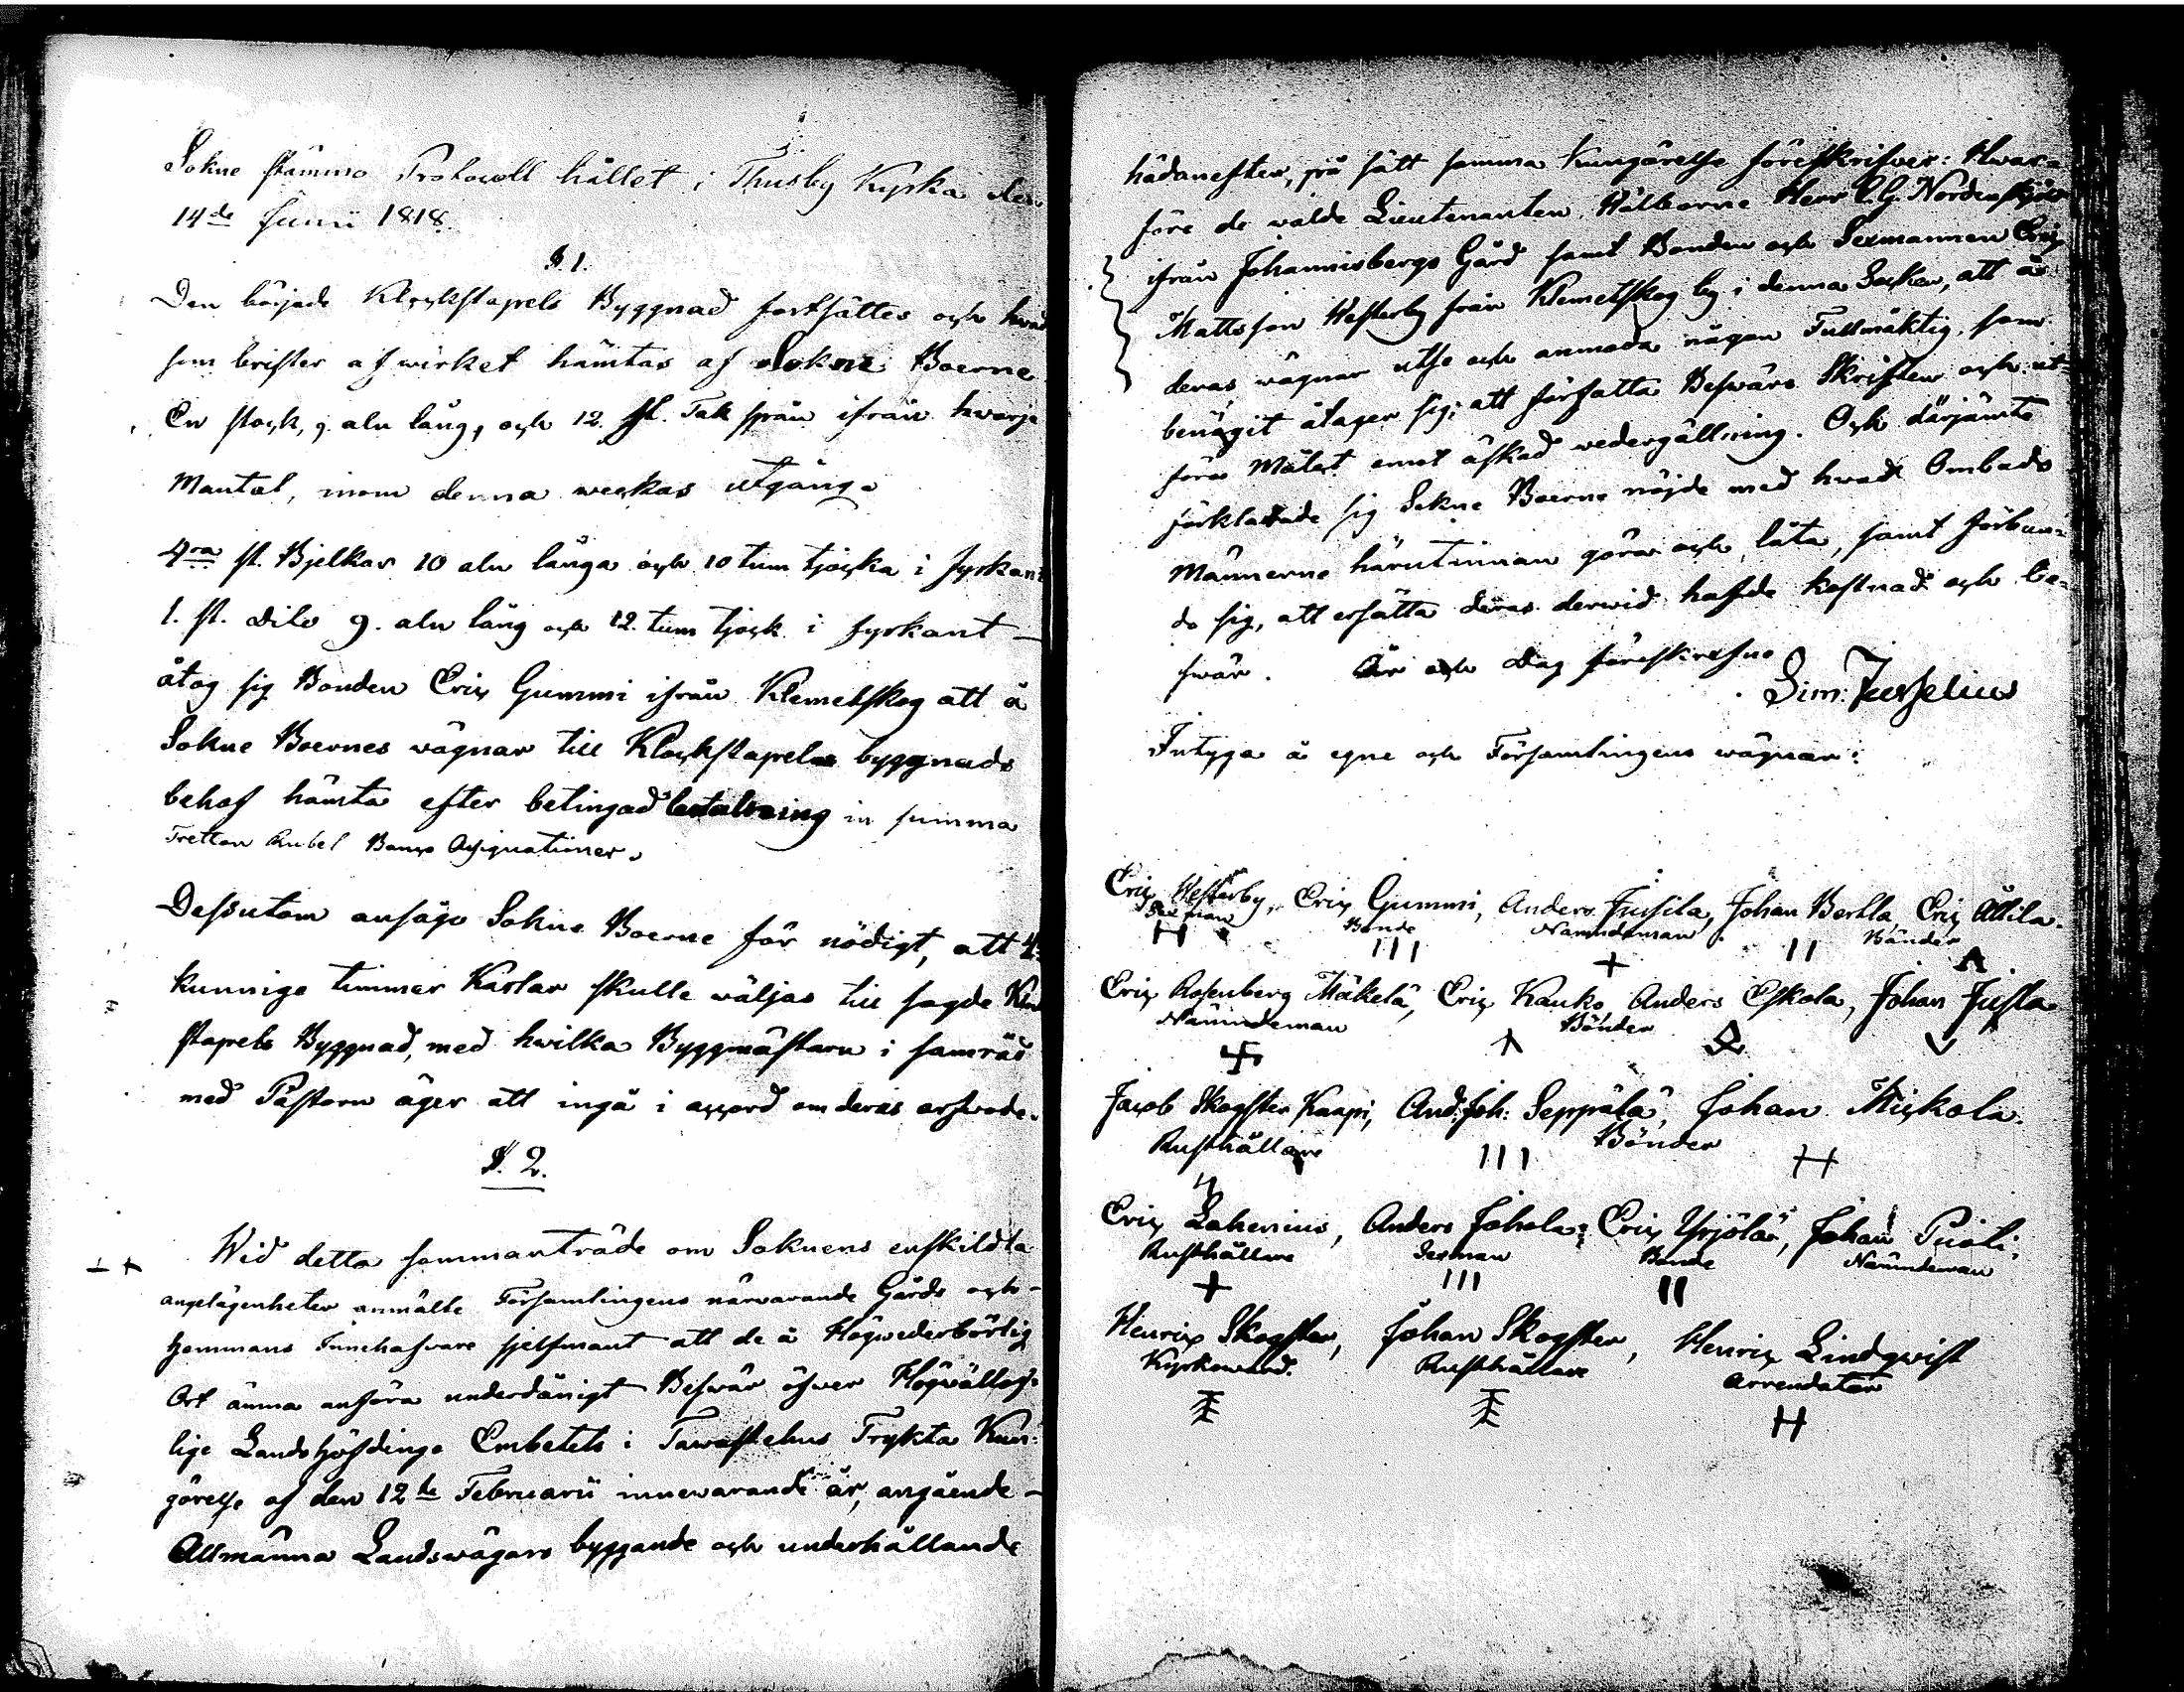 Sokne stämmo Protocoll hållet i Thusby Kyrka den
14de Junii 1818.
§ 1.
Den började Klockstapels Byggnad fortsättes och hvad
som brister af wirket hämtas af Sokne Boerne
En stock, 9. aln lång, och 12. st. Tak spån ifrån hvarje
Mantal, inom denna weckas utgång.
4ra st. Bjelkar 10 aln långa och 10 tum tjocka i fyrkant
1. st. dito 9. aln lång och 12. tum tjock i fyrkant —
åtog sig Bonden Eric Gummi ifrån Klemetskog att å
Sokne Boernes wägnar till Klockstapelns byggnads
behof hämta efter betingad betalning in summa
Tretton Rubel Banco Assignationer.
Dessutom ansågo Sokne Boerne för nödigt, att 4.
kunnige timmer Karlar skulle wäljas till sagde
stapels Byggnad, med hwilka Byggmästarn i samråd
med Pastorn äger att ingå i accord om deras arfwode.
§. 2.
Wid detta sammanträde om Soknens enskildta
angelägenheter anmälte Församlingens närvarande Gårds och
hemmans Innehafvare sjelfmant att de å Högwederbörlig
Ort ämna anföra underdånigt Beswär öfver Högwällof-
lige Landshöfdinge Embetets i Tawastehus Trykta Kun-
görelse af den 12te Februarii innewarande år, angående —
Allmänna Landswägars byggande och underhållande
hädanefter, på sätt samma Kungörelse föreskrifver: Hwar-
före de walde Lieutenanten Wälborne Herr C. G. Nordenskjöld
ifrån Johannisbergs Gård samt Bonden och Sexmannen Eric
Mattsson Westerby från Klemetskog by i denna Socken, att å
deras wägnar utse och anmoda någon Fullmäktig, som
benägit åtager sig, att författa Beswärs Skriften och ut-
föra Målet emot äskad wedergällning. Och därjämte
förklarade sig Sokne Boerne nöjde med hwad Ombuds
Männerne härutinnan göra och låta, samt förbun-
do sig, att ersätta deras derwid hafde kostnad och be-
swär. År och Dag föreskrefne
Sim: Jusselius
Intyga å egne och Församlingens wägnar:
Eric Westerby, Eric Gummi, Anders Jussila, Johan Bertla, Eric Attila.
Sexman Bonde Nämndeman Bönder
Eric Rosenberg Mäkelä, Eric Kauko, Anders Eskola, Johan Justa
Nämndeman Bönder
Jacob Skogster Kaapi, And: Joh: Seppälä, Johan Mickola.
Rusthållare Bönder
Eric Lahenius, Anders Johola, Eric Yrjölä, Johan Puoti,
Rusthållare Sexman Bonde Nämndeman
Henric Skogster, Johan Skogster, Henric Lindqwist
Kyrkoward. Rusthållare Arrendator